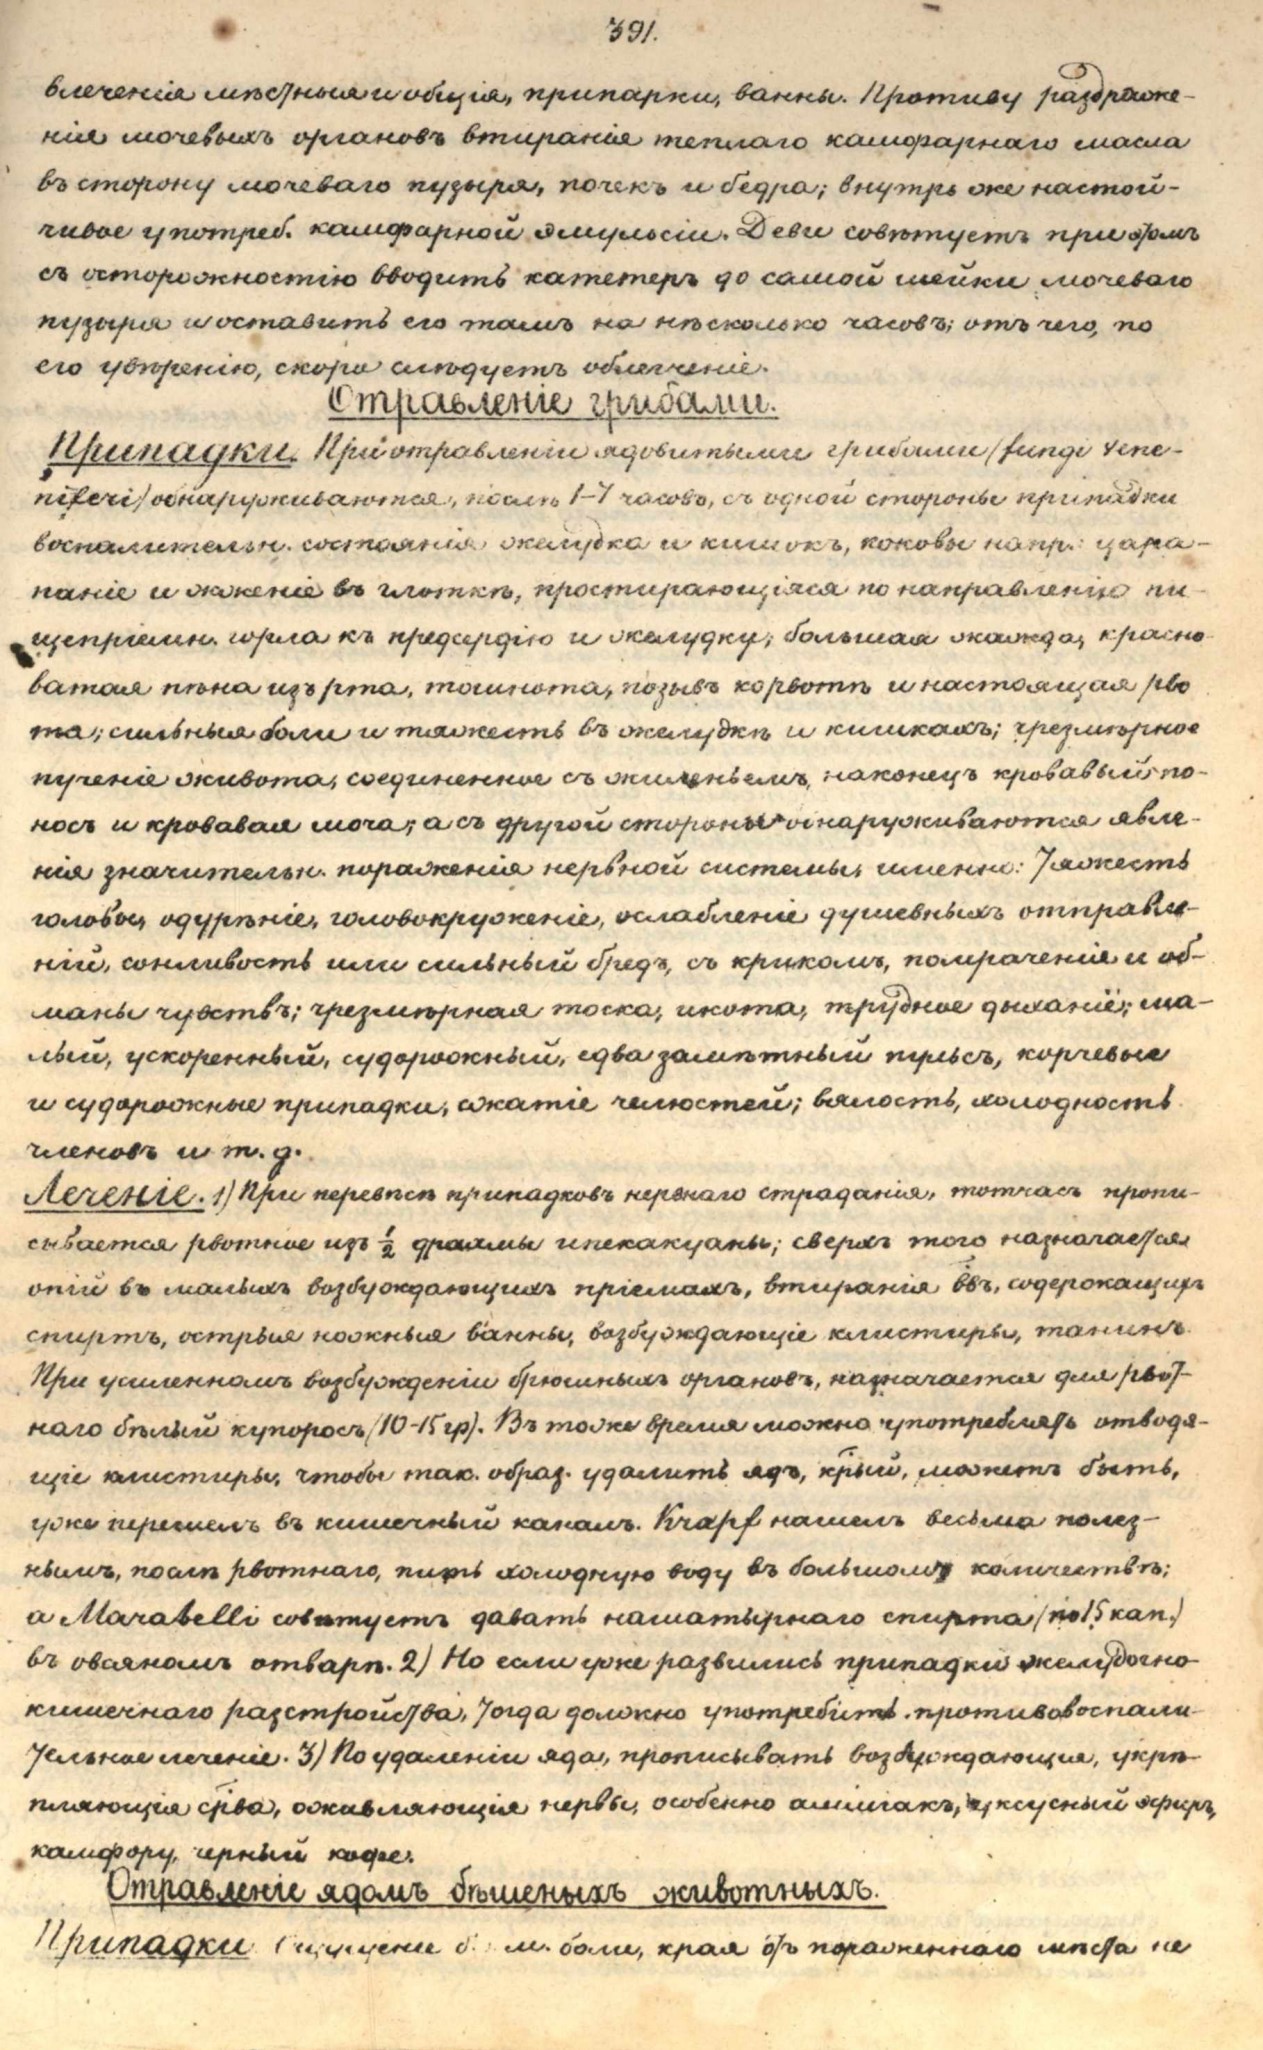 391.
влеченія мѣстныя и общія, припарки, ванны. Противу раздраже-
нія мочевыхъ органовъ втиранія теплаго камфарнаго масла
въ сторону мочеваго пузыря, почекъ и бедра; внутрь же настой-
чивое употреб. камфарной эмульсіи. Деви совѣтуетъ при этомъ
съ осторожностію вводить катетеръ до самой шейки мочеваго
пузыря и оставить его тамъ на нѣсколько часовъ; отъ чего, по
его увѣренію, скоро слѣдуетъ облегченіе.
Отравленіе грибами.
Припадки. При отравленіи ядовитыми грибами (fungi vene-
niferi) обнаруживаются, послѣ 1-7 часовъ, съ одной стороны припадки
воспалительн. состоянія желудка и кишокъ, каковы напр.: цара-
паніе и жженіе въ глоткѣ, простирающіяся по направленію пи-
щепріемн. горла къ предсердію и желудку; большая жажда, красно-
ватая пѣна изъ рта, тошнота, позывъ ко рвотѣ и настоящая рво
та; сильныя боли и тяжесть въ желудкѣ и кишкахъ; чрезмѣрное
пученіе живота, соединенное съ жиленьемъ, наконецъ кровавый по-
носъ и кровавая моча; а съ другой стороны обнаруживаются явле-
нія значительн. пораженія нервной системы, именно: Тяжесть
головы, одурѣніе, головокруженіе, ослабленіе душевныхъ отправле-
ній, сонливость или сильный бредъ, съ крикомъ, помраченіе и об-
маны чувствъ; чрезмѣрная тоска, икота, трудное дыханіе; ма-
лый, ускоренный, судорожный, едва замѣтный пульсъ, корчевые
и судорожные припадки, сжатіе челюстей; вялость, холодность
членовъ и т. д.
Леченіе. 1) При перевѣсѣ припадковъ нервнаго страданія, тотчасъ пропи-
сывается рвотное изъ ½ драхмы ипекакуаны; сверхъ того назначается
опій въ малыхъ возбуждающихъ пріемахъ, втиранія ввъ, содержащихъ
спиртъ, острыя ножныя ванны, возбуждающіе клистиры, танинъ.
При усиленномъ возбужденіи брюшныхъ органовъ, назначается для рвот-
наго бѣлый купоросъ (10-15 гр). Въ тоже время можно употреблять отводя-
щіе клистиры, чтобы так. образ. удалить ядъ, крый, можетъ быть,
уже перешелъ въ кишечный каналъ. Krapf нашелъ весьма полез-
нымъ, послѣ рвотнаго, пить холодную воду въ большомъ количествѣ;
а Marabelli совѣтуетъ давать нашатырнаго спирта (по 15 кап.)
въ овсяномъ отварѣ. 2) Но если уже развились припадки желудочно-
кишечнаго разстройства, тогда должно употребить противовоспали-
тельное леченіе. 3) По удаленіи яда, прописывать возбуждающія, укрѣ-
пляющія срва, оживляющія нервы, особенно амміакъ, уксусный эфиръ,
камфору, черный кофе.
Отравленіе ядомъ бѣшеныхъ животныхъ.
Припадки Ощущеніе б. м. боли, края отъ пораженнаго мѣста не